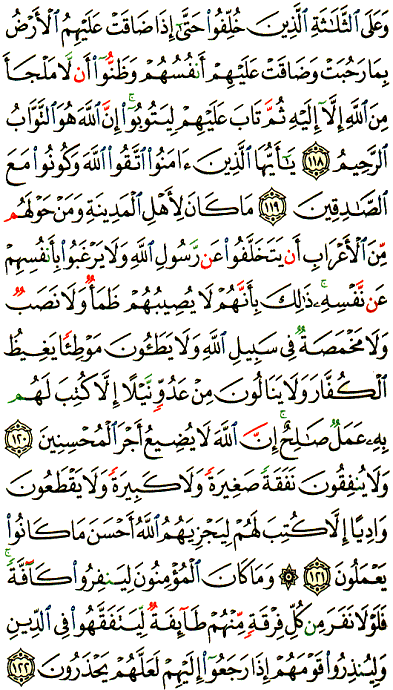 وَعَلَى ٱلثَّلَٰثَةِ ٱلَّذِينَ خُلِّفُوا۟ حَتَّىٰٓ إِذَا ضَاقَتْ عَلَيْهِمُ ٱلْأَرْضُ
بِمَا رَحُبَتْ وَضَاقَتْ عَلَيْهِمْ أَنفُسُهُمْ وَظَنُّوٓا۟ أَن لَّا مَلْجَأَ
مِنَ ٱللَّهِ إِلَّآ إِلَيْهِ ثُمَّ تَابَ عَلَيْهِمْ لِيَتُوبُوٓا۟ ۚ إِنَّ ٱللَّهَ هُوَ ٱلتَّوَّابُ
ٱلرَّحِيمُ ۝١١٨ يَٰٓأَيُّهَا ٱلَّذِينَ ءَامَنُوا۟ ٱتَّقُوا۟ ٱللَّهَ وَكُونُوا۟ مَعَ
ٱلصَّٰدِقِينَ ۝١١٩ مَا كَانَ لِأَهْلِ ٱلْمَدِينَةِ وَمَنْ حَوْلَهُم
مِّنَ ٱلْأَعْرَابِ أَن يَتَخَلَّفُوا۟ عَن رَّسُولِ ٱللَّهِ وَلَا يَرْغَبُوا۟ بِأَنفُسِهِمْ
عَن نَّفْسِهِۦ ۚ ذَٰلِكَ بِأَنَّهُمْ لَا يُصِيبُهُمْ ظَمَأٌ وَلَا نَصَبٌ
وَلَا مَخْمَصَةٌ فِى سَبِيلِ ٱللَّهِ وَلَا يَطَـُٔونَ مَوْطِئًا يَغِيظُ
ٱلْكُفَّارَ وَلَا يَنَالُونَ مِنْ عَدُوٍّ نَّيْلًا إِلَّا كُتِبَ لَهُم
بِهِۦ عَمَلٌ صَٰلِحٌ ۚ إِنَّ ٱللَّهَ لَا يُضِيعُ أَجْرَ ٱلْمُحْسِنِينَ ۝١٢٠
وَلَا يُنفِقُونَ نَفَقَةً صَغِيرَةً وَلَا كَبِيرَةً وَلَا يَقْطَعُونَ
وَادِيًا إِلَّا كُتِبَ لَهُمْ لِيَجْزِيَهُمُ ٱللَّهُ أَحْسَنَ مَا كَانُوا۟
يَعْمَلُونَ ۝١٢١ ۞ وَمَا كَانَ ٱلْمُؤْمِنُونَ لِيَنفِرُوا۟ كَآفَّةً ۚ
فَلَوْلَا نَفَرَ مِن كُلِّ فِرْقَةٍ مِّنْهُمْ طَآئِفَةٌ لِّيَتَفَقَّهُوا۟ فِى ٱلدِّينِ
وَلِيُنذِرُوا۟ قَوْمَهُمْ إِذَا رَجَعُوٓا۟ إِلَيْهِمْ لَعَلَّهُمْ يَحْذَرُونَ ۝١٢٢